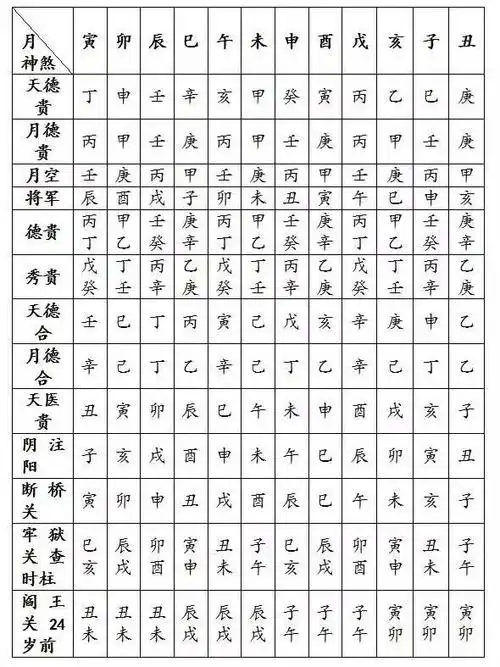 月 寅 卯 辰 巳 午 未 申 酉 戊 亥 子 丑
神煞
天德貴 丁 申 壬 辛 亥 甲 癸 寅 丙 乙 巳 庚
月德貴 丙 甲 壬 庚 丙 甲 壬 庚 丙 甲 壬 庚
月空 壬 庚 丙 甲 壬 庚 丙 甲 壬 庚 丙 甲
将军 辰 酉 戌 子 卯 未 丑 寅 午 巳 申 亥
德貴 丙丁 甲乙 壬癸 庚辛 丙丁 甲乙 壬癸 庚辛 丙丁 甲乙 壬癸 庚辛
秀貴 戊癸 丁壬 丙辛 乙庚 戊癸 丁壬 丙辛 乙庚 戊癸 丁壬 丙辛 乙庚
天德合 壬 巳 丁 丙 寅 己 戊 亥 辛 庚 申 乙
月德合 辛 己 丁 乙 辛 己 丁 乙 辛 己 丁 乙
天医貴 丑 寅 卯 辰 巳 午 未 申 酉 戌 亥 子
阴注阳 子 亥 戌 酉 申 未 午 巳 辰 卯 寅 丑
断桥关 寅 卯 申 丑 戌 酉 辰 巳 午 未 亥 子
牢狱关查时柱 巳亥 辰戌 卯酉 寅申 丑未 子午 巳亥 辰戌 卯酉 寅申 丑未 子午
阎王关24岁前 丑未 丑未 丑未 辰戌 辰戌 辰戌 子午 子午 子午 寅卯 寅卯 寅卯